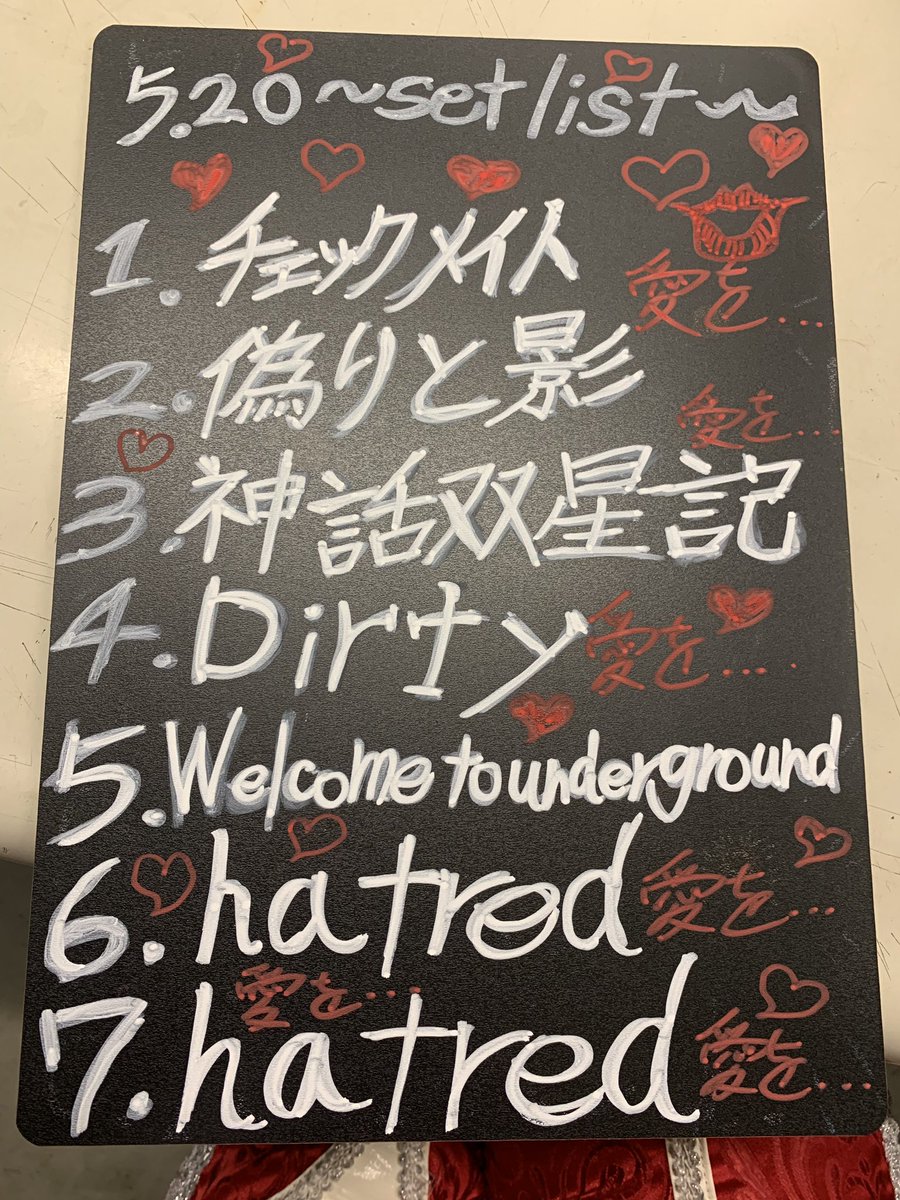 5.20～set list～
1. チェックメイト
愛を...
2. 偽りと影
愛を....
3. 神話双星記
4. Dirty
愛を.....
5. Welcome to underground
6. hatred
愛を...
愛を...
7. hatred
愛を...